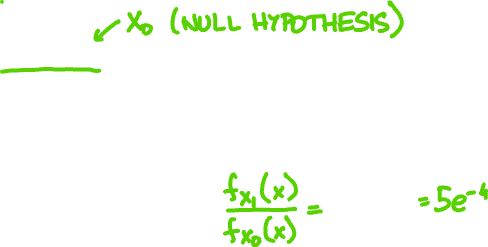 X₀ (NULL HYPOTHESIS)
f_X₁(x) / f_X₀(x) = = 5e⁻⁴